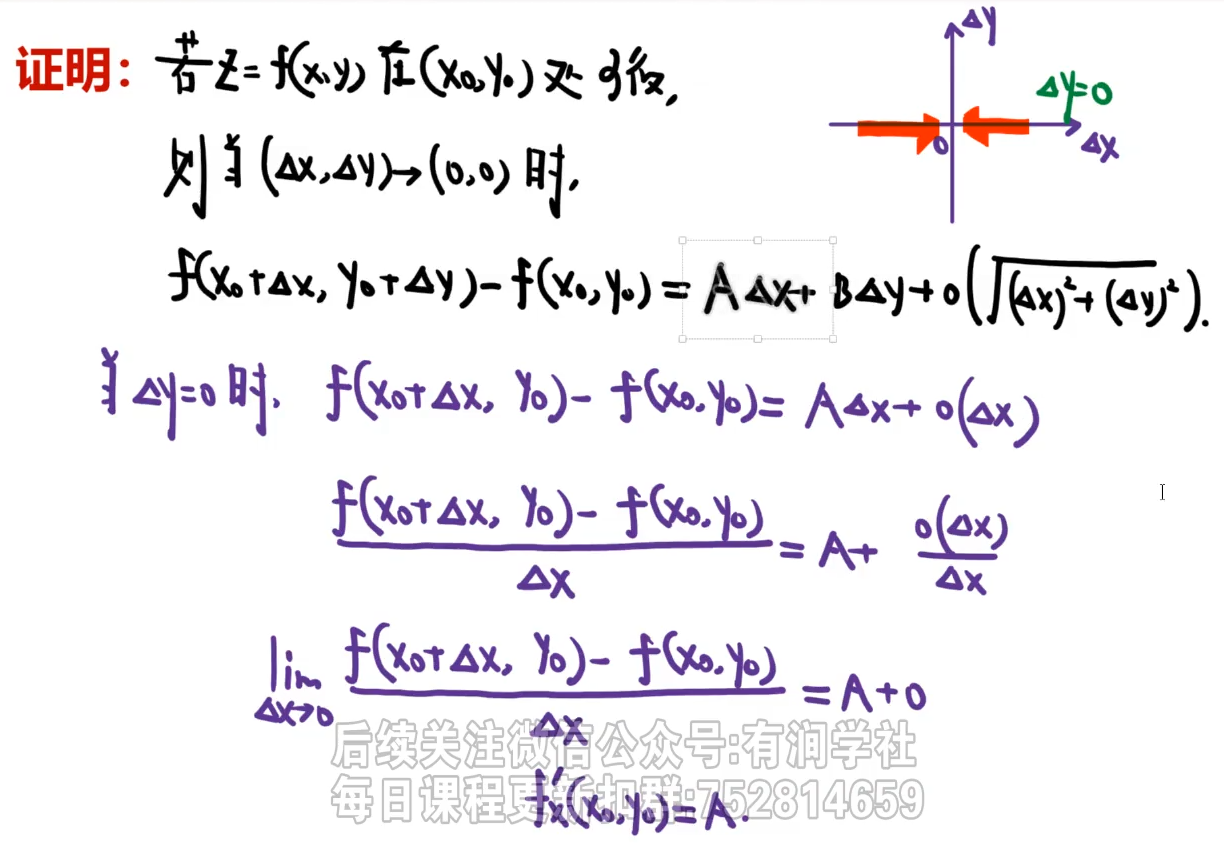 证明: 若 z=f(x,y) 在(x₀,y₀)处可微,
ΔY
ΔY=0
0
ΔX
则当(Δx,Δy)→(0,0)时,
f(x₀+Δx, y₀+Δy)-f(x₀,y₀)=AΔx+BΔy+o(√((Δx)²+(Δy)²)).
当Δy=0时, f(x₀+Δx, y₀)-f(x₀,y₀)=AΔx+o(Δx)
(f(x₀+Δx, y₀)-f(x₀,y₀))/Δx=A+o(Δx)/Δx
lim Δx→0 (f(x₀+Δx, y₀)-f(x₀,y₀))/Δx=A+0
后续关注微信公众号:有润学社
每日课程更新扣群:752814659
f'ₓ(x₀,y₀)=A.